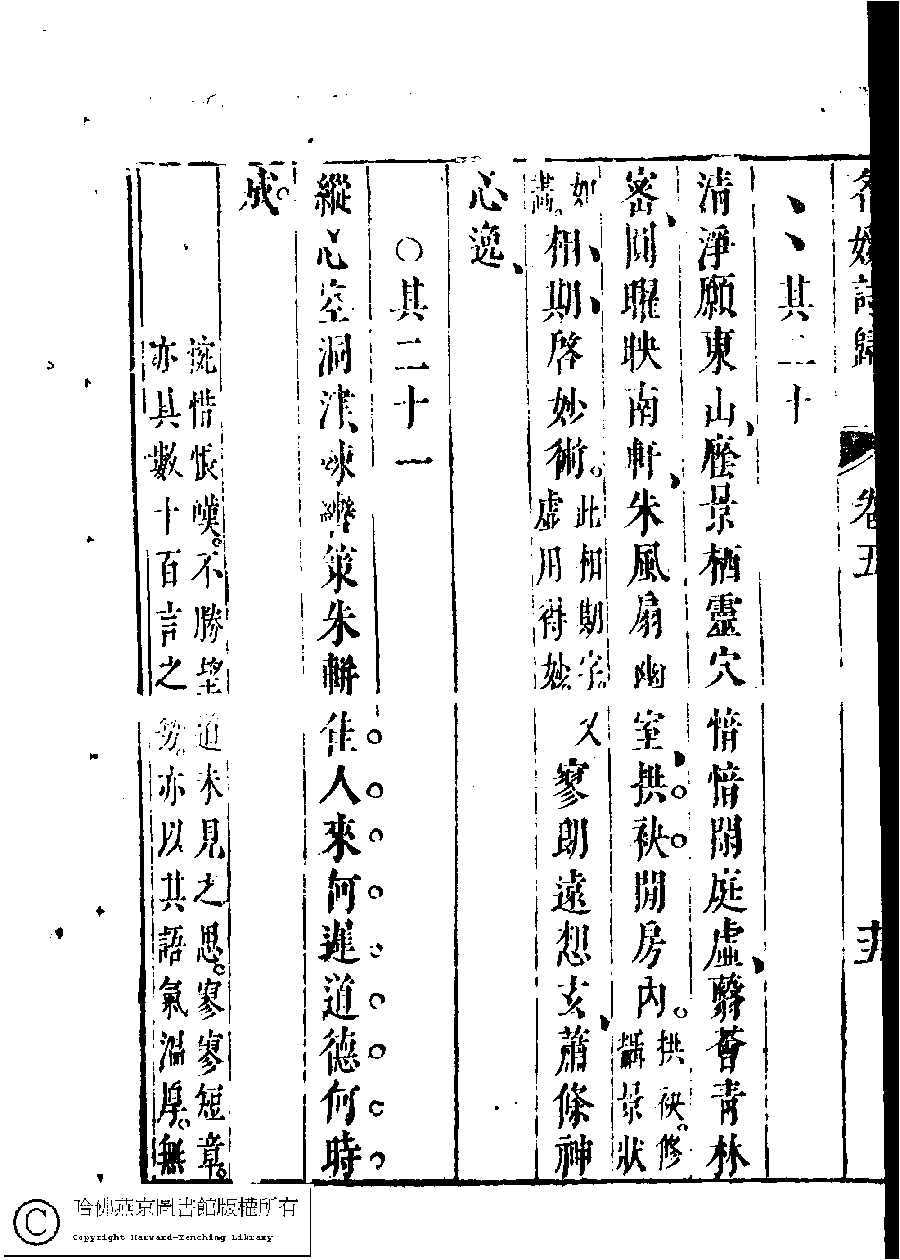 名媛詩歸 卷五
其二十
清淨願東山廕景栖靈穴愔愔閑庭虛翳薈青林
密圓曜映南軒朱風扇幽室拱袂閒房內。拱袂。修攝景狀
如畫。相期啓妙術。此相期字。虛用得妙又寥朗遠想玄蕭條神
心逸
○其二十一
縱心空洞津竦轡策朱軿佳人來何遲道德何時
成。
惋惜悵嘆。不勝望道未見之思。寥寥短章。
亦具數十百言之勢。亦以其語氣溫厚。無
哈佛燕京圖書館版權所有
Copyright Harvard-Yenching Library